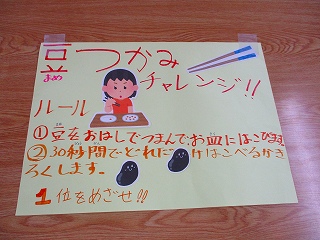 豆つかみ
まめ
チャレンジ!!
ルール
①豆をおはしでつまんでお皿にはこびます
②30秒間でどれだけはこべるかき
ろくします。
1位をめざせ!!